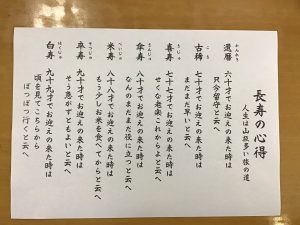 長寿の心得
人生は山坂多い旅の道
還暦
かんれき
六十才でお迎えの来た時は
只今留守と云へ
古稀
こき
七十才でお迎えの来た時は
まだまだ早いと云へ
喜寿
きじゅ
七十七才でお迎えの来た時は
せくな老楽これからよと云へ
傘寿
さんじゅ
八十才でお迎えの来た時は
なんのまだまだ役に立つと云へ
米寿
べいじゅ
八十八才でお迎えの来た時は
もう少しお米を食べてからと云へ
卒寿
そつじゅ
九十才でお迎えの来た時は
そう急がずともよいと云へ
白寿
はくじゅ
九十九才でお迎えの来た時は
頃を見てこちらから
ぼつぼつ行くと云へ